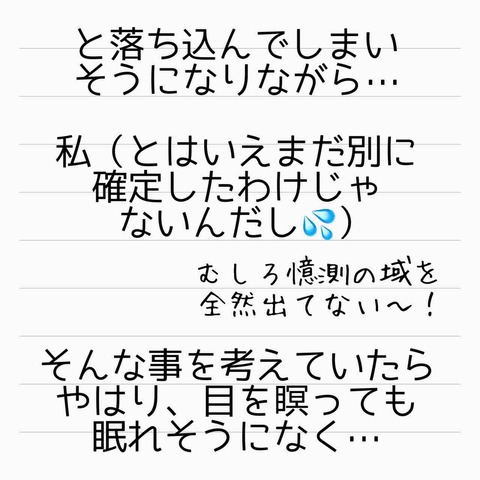 と落ち込んでしまい
そうになりながら…
私（とはいえまだ別に
確定したわけじゃ
ないんだし💦）
むしろ憶測の域を
全然出てない〜！
そんな事を考えていたら
やはり、目を瞑っても
眠れそうになく…